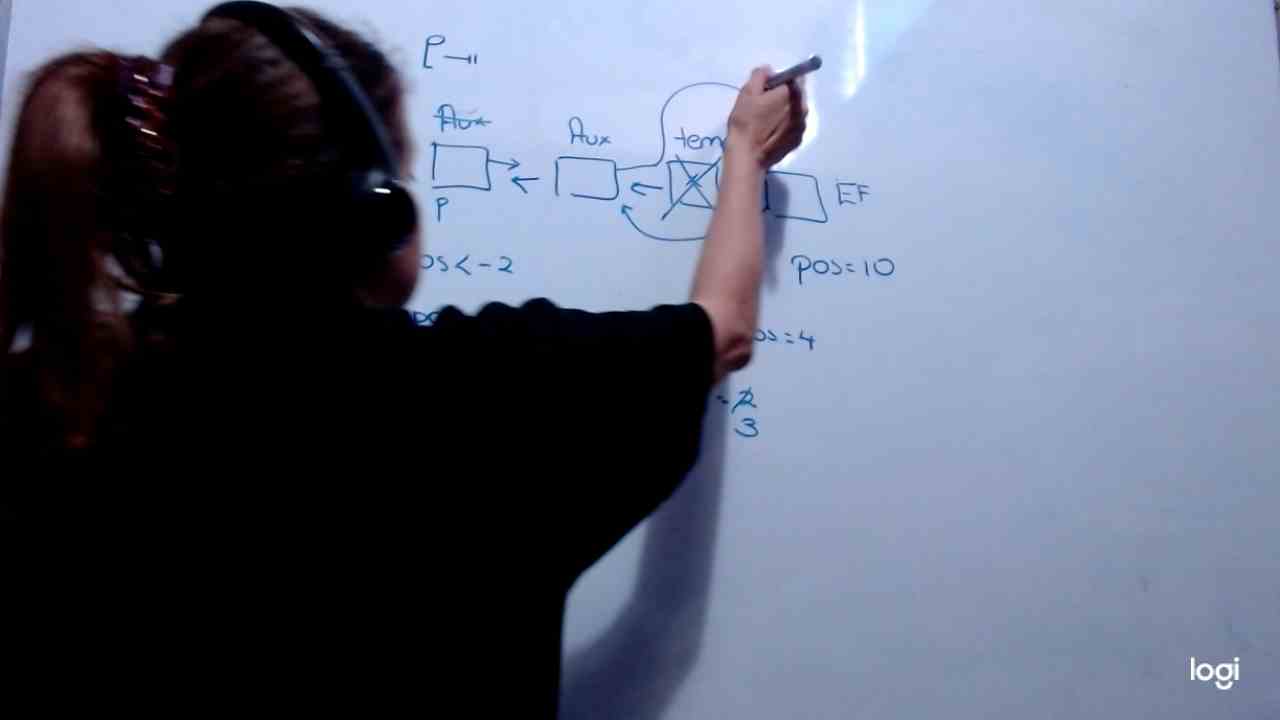 P
Aux Aux tem
P EF
os<-2 pos=10
os=4
=2
3
logi